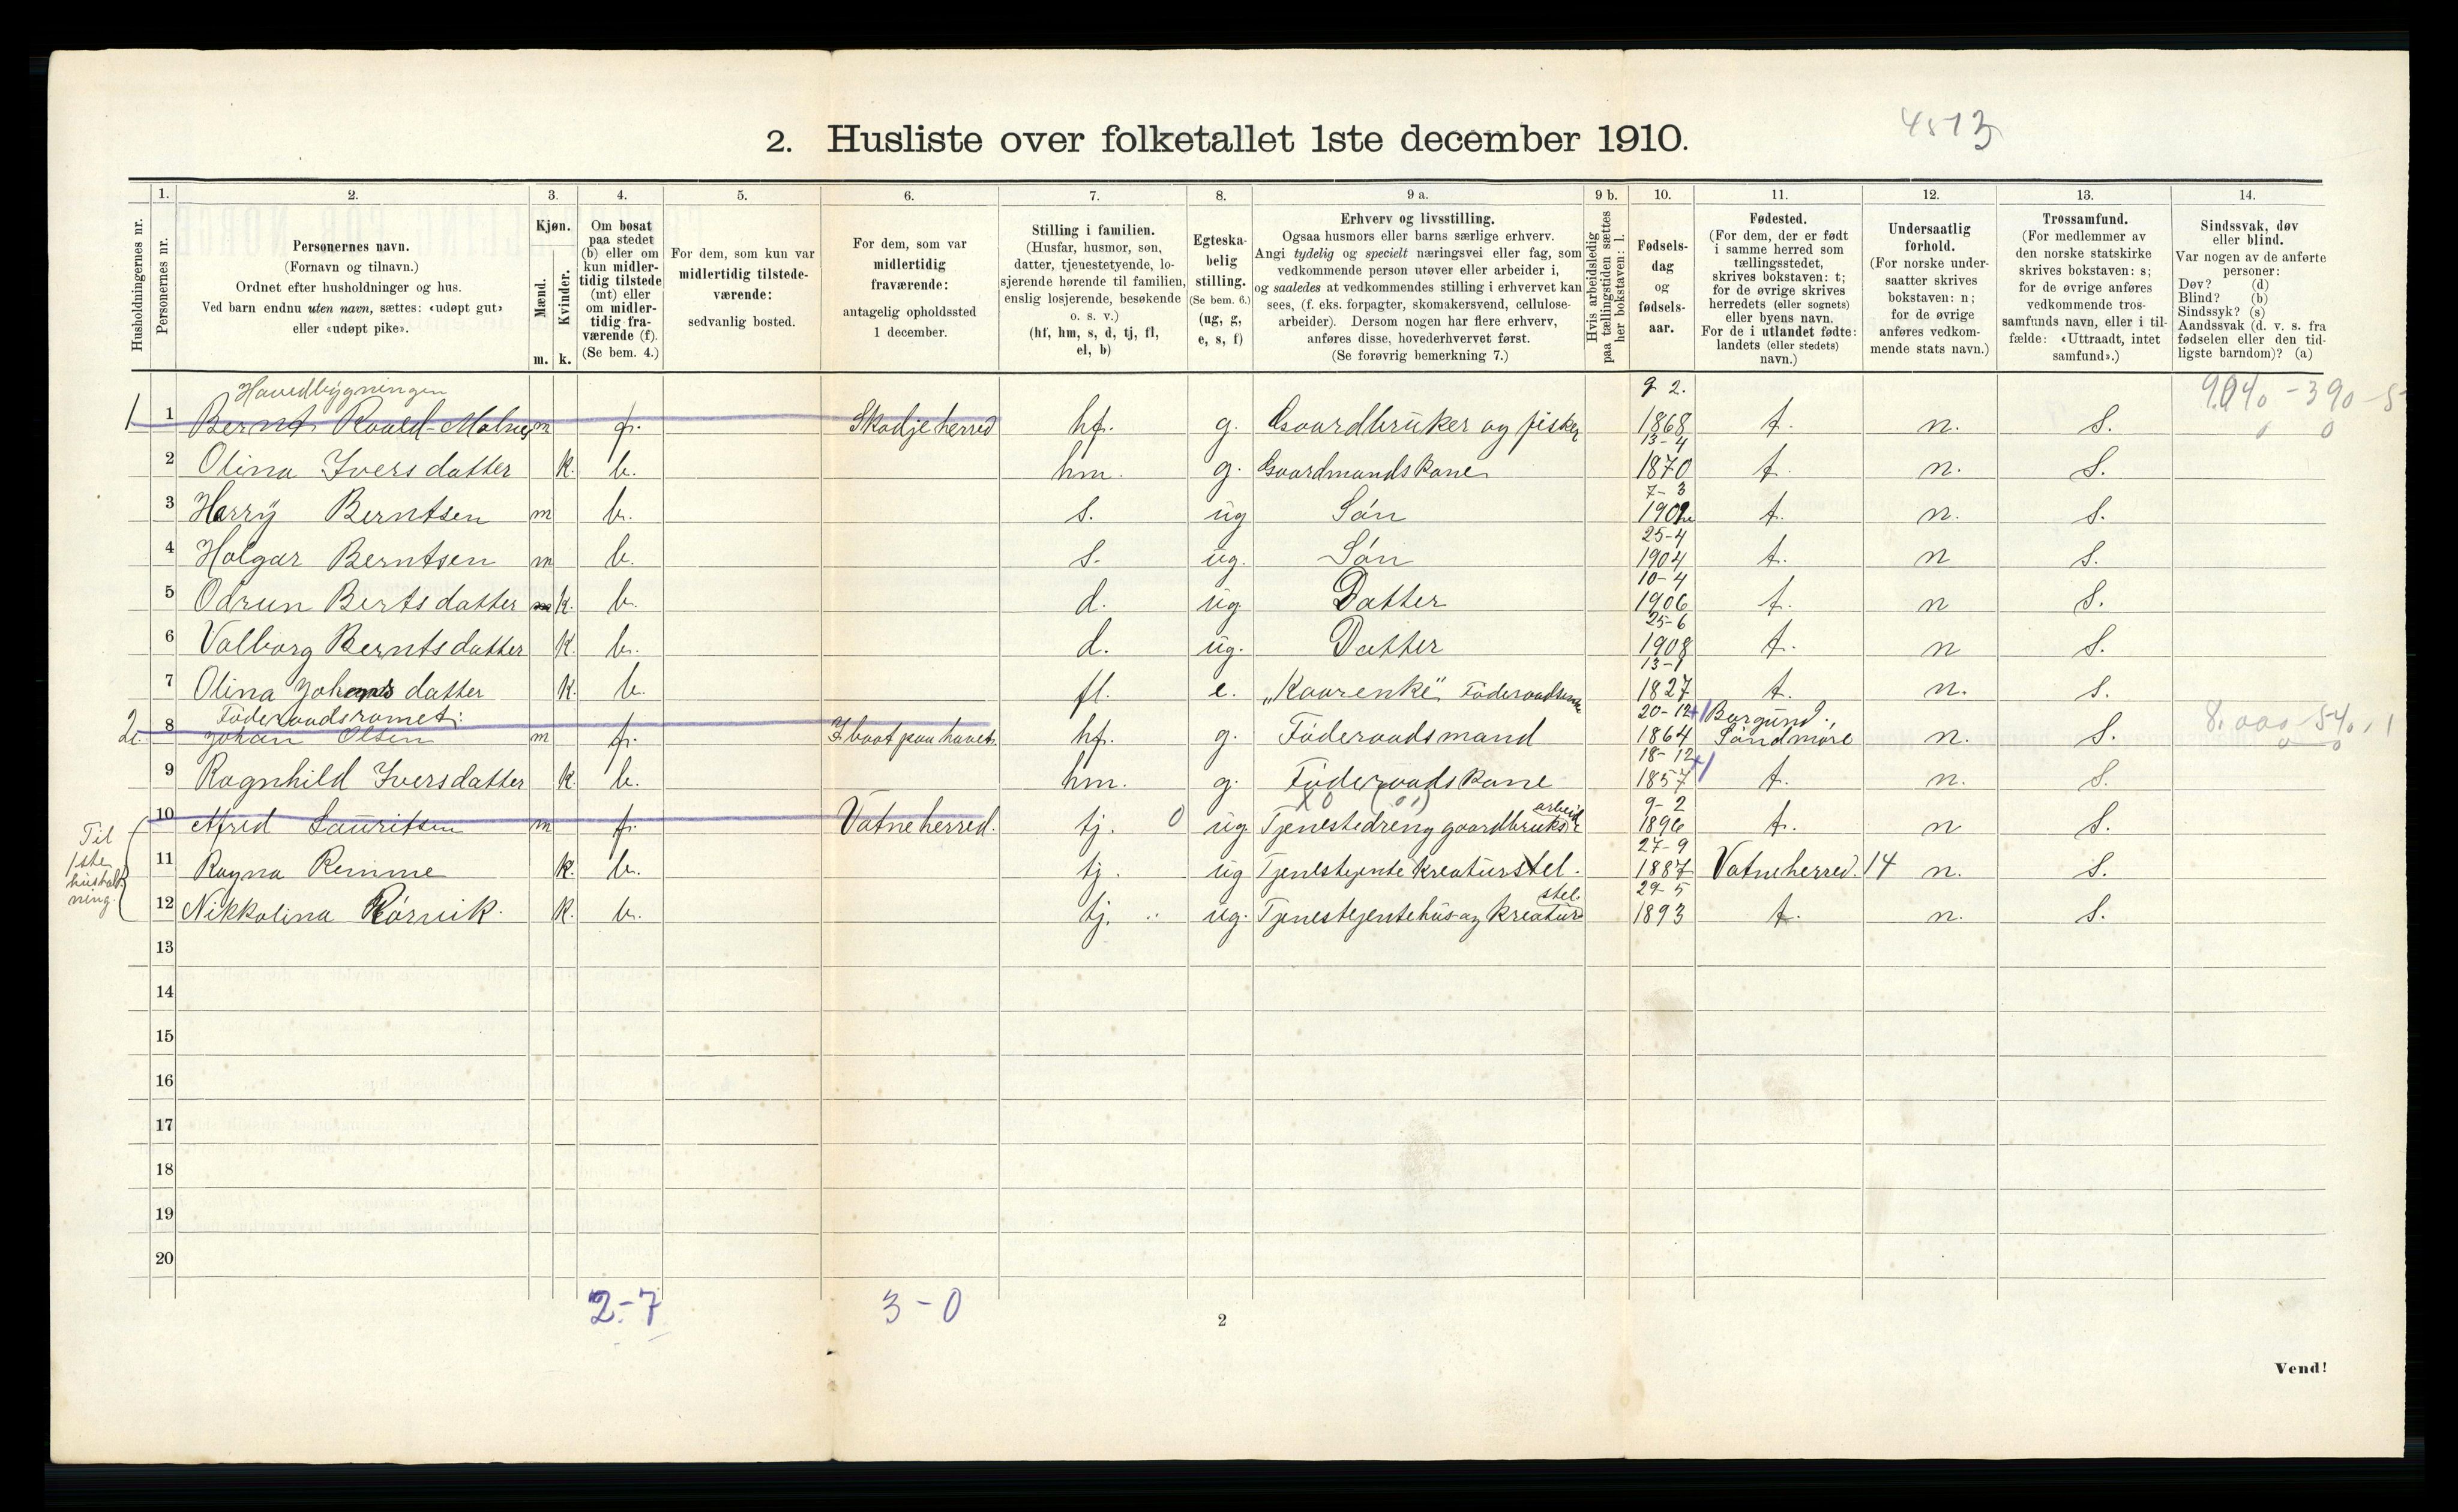 2. Husliste over folketallet 1ste december 1910.
4513
1. 2. 3. 4. 5. 6. 7. 8. 9 a. 9 b. 10. 11. 12. 13. 14.
Husholdningernes nr.
Personernes nr.
Personernes navn.
(Fornavn og tilnavn.)
Ordnet efter husholdninger og hus.
Ved barn endnu uten navn, sættes: «udøpt gut»
eller «udøpt pike».
Kjøn.
Mænd.
Kvinder.
m. k.
Om bosat
paa stedet
(b) eller om
kun midler-
tidig tilstede
(mt) eller
om midler-
tidig fra-
værende (f).
(Se bem. 4.)
For dem, som kun var
midlertidig tilstede-
værende:
sedvanlig bosted.
For dem, som var
midlertidig
fraværende:
antagelig opholdssted
1 december.
Stilling i familien.
(Husfar, husmor, søn,
datter, tjenestetyende, lo-
sjerende hørende til familien,
enslig losjerende, besøkende
o. s. v.)
(hf, hm, s, d, tj, fl,
el, b)
Egteska-
belig
stilling.
(Se bem. 6.)
(ug, g,
e, s, f)
Erhverv og livsstilling.
Ogsaa husmors eller barns særlige erhverv.
Angi tydelig og specielt næringsvei eller fag, som
vedkommende person utøver eller arbeider i,
og saaledes at vedkommendes stilling i erhvervet kan
sees, (f. eks. forpagter, skomakersvend, cellulose-
arbeider). Dersom nogen har flere erhverv,
anføres disse, hovederhvervet først.
(Se forøvrig bemerkning 7.)
Hvis arbeidsledig
paa tællingstiden sættes
her bokstaven: l.
Fødsels-
dag
og
fødsels-
aar.
Fødested.
(For dem, der er født
i samme herred som
tællingsstedet,
skrives bokstaven: t;
for de øvrige skrives
herredets (eller sognets)
eller byens navn.
For de i utlandet fødte:
landets (eller stedets)
navn.)
Undersaatlig
forhold.
(For norske under-
saatter skrives
bokstaven: n;
for de øvrige
anføres vedkom-
mende stats navn.)
Trossamfund.
(For medlemmer av
den norske statskirke
skrives bokstaven: s;
for de øvrige anføres
vedkommende tros-
samfunds navn, eller i til-
fælde: «Uttraadt, intet
samfund».)
Sindssvak, døv
eller blind.
Var nogen av de anførte
personer:
Døv? (d)
Blind? (b)
Sindssyk? (s)
Aandssvak (d. v. s. fra
fødselen eller den tid-
ligste barndom)? (a)
Havedbygningen
1 1 Bernt Roald-Malnes m f. Skodje herred hf. g. Gaardbruker og fisker 9 2. 1868 t. n. S.
2 Olina Iversdatter k. b. hm. g. Gaardmandskone 13-4 1870 t. n. S.
3 Harry Berntsen m b. s. ug Søn 7-3 1902 t. n. S.
4 Holgar Berntsen m b. s. ug. Søn 25-4 1904 t. n S.
5 Odrun Bertsdatter k. b. d. ug. Datter 10-4 1906 t. n S.
6 Valborg Berntsdatter k. b. d. ug. Datter 25-6 1908 t. n S.
7 Olina Johansdatter k. b. fl. e. „Kaarenke" Føderaadsenke 13-1 1827 t. n. S.
Føderaadsromet:
2. 8 Johan Olsen m f. I baat paa havet. hf. g. Føderaadsmand 20-12 1864 Borgund, Søndmøre n. S.
9 Ragnhild Iversdatter k. b. hm. g. Føderaadskone 18-12 1857 t. n. S.
10 Alfred Lauritsen m f. Vatne herred. tj. 0 ug Tjenestedreng gaardbruksarbeid 9-2 1896 t. n S.
11 Ragna Remme k. b. tj. ug Tjenestejente kreaturstel. 27-9 1887 Vatne herred. 14 n. S.
12 Nikkolina Rørvik. k. b. tj. ug. Tjenestejente hus og kreaturstel. 29-5 1893 t. n. S.
Til
1ste
hushold-
ning.
13
14
15
16
17
18
19
20
2-7
3-0
2
Vend!